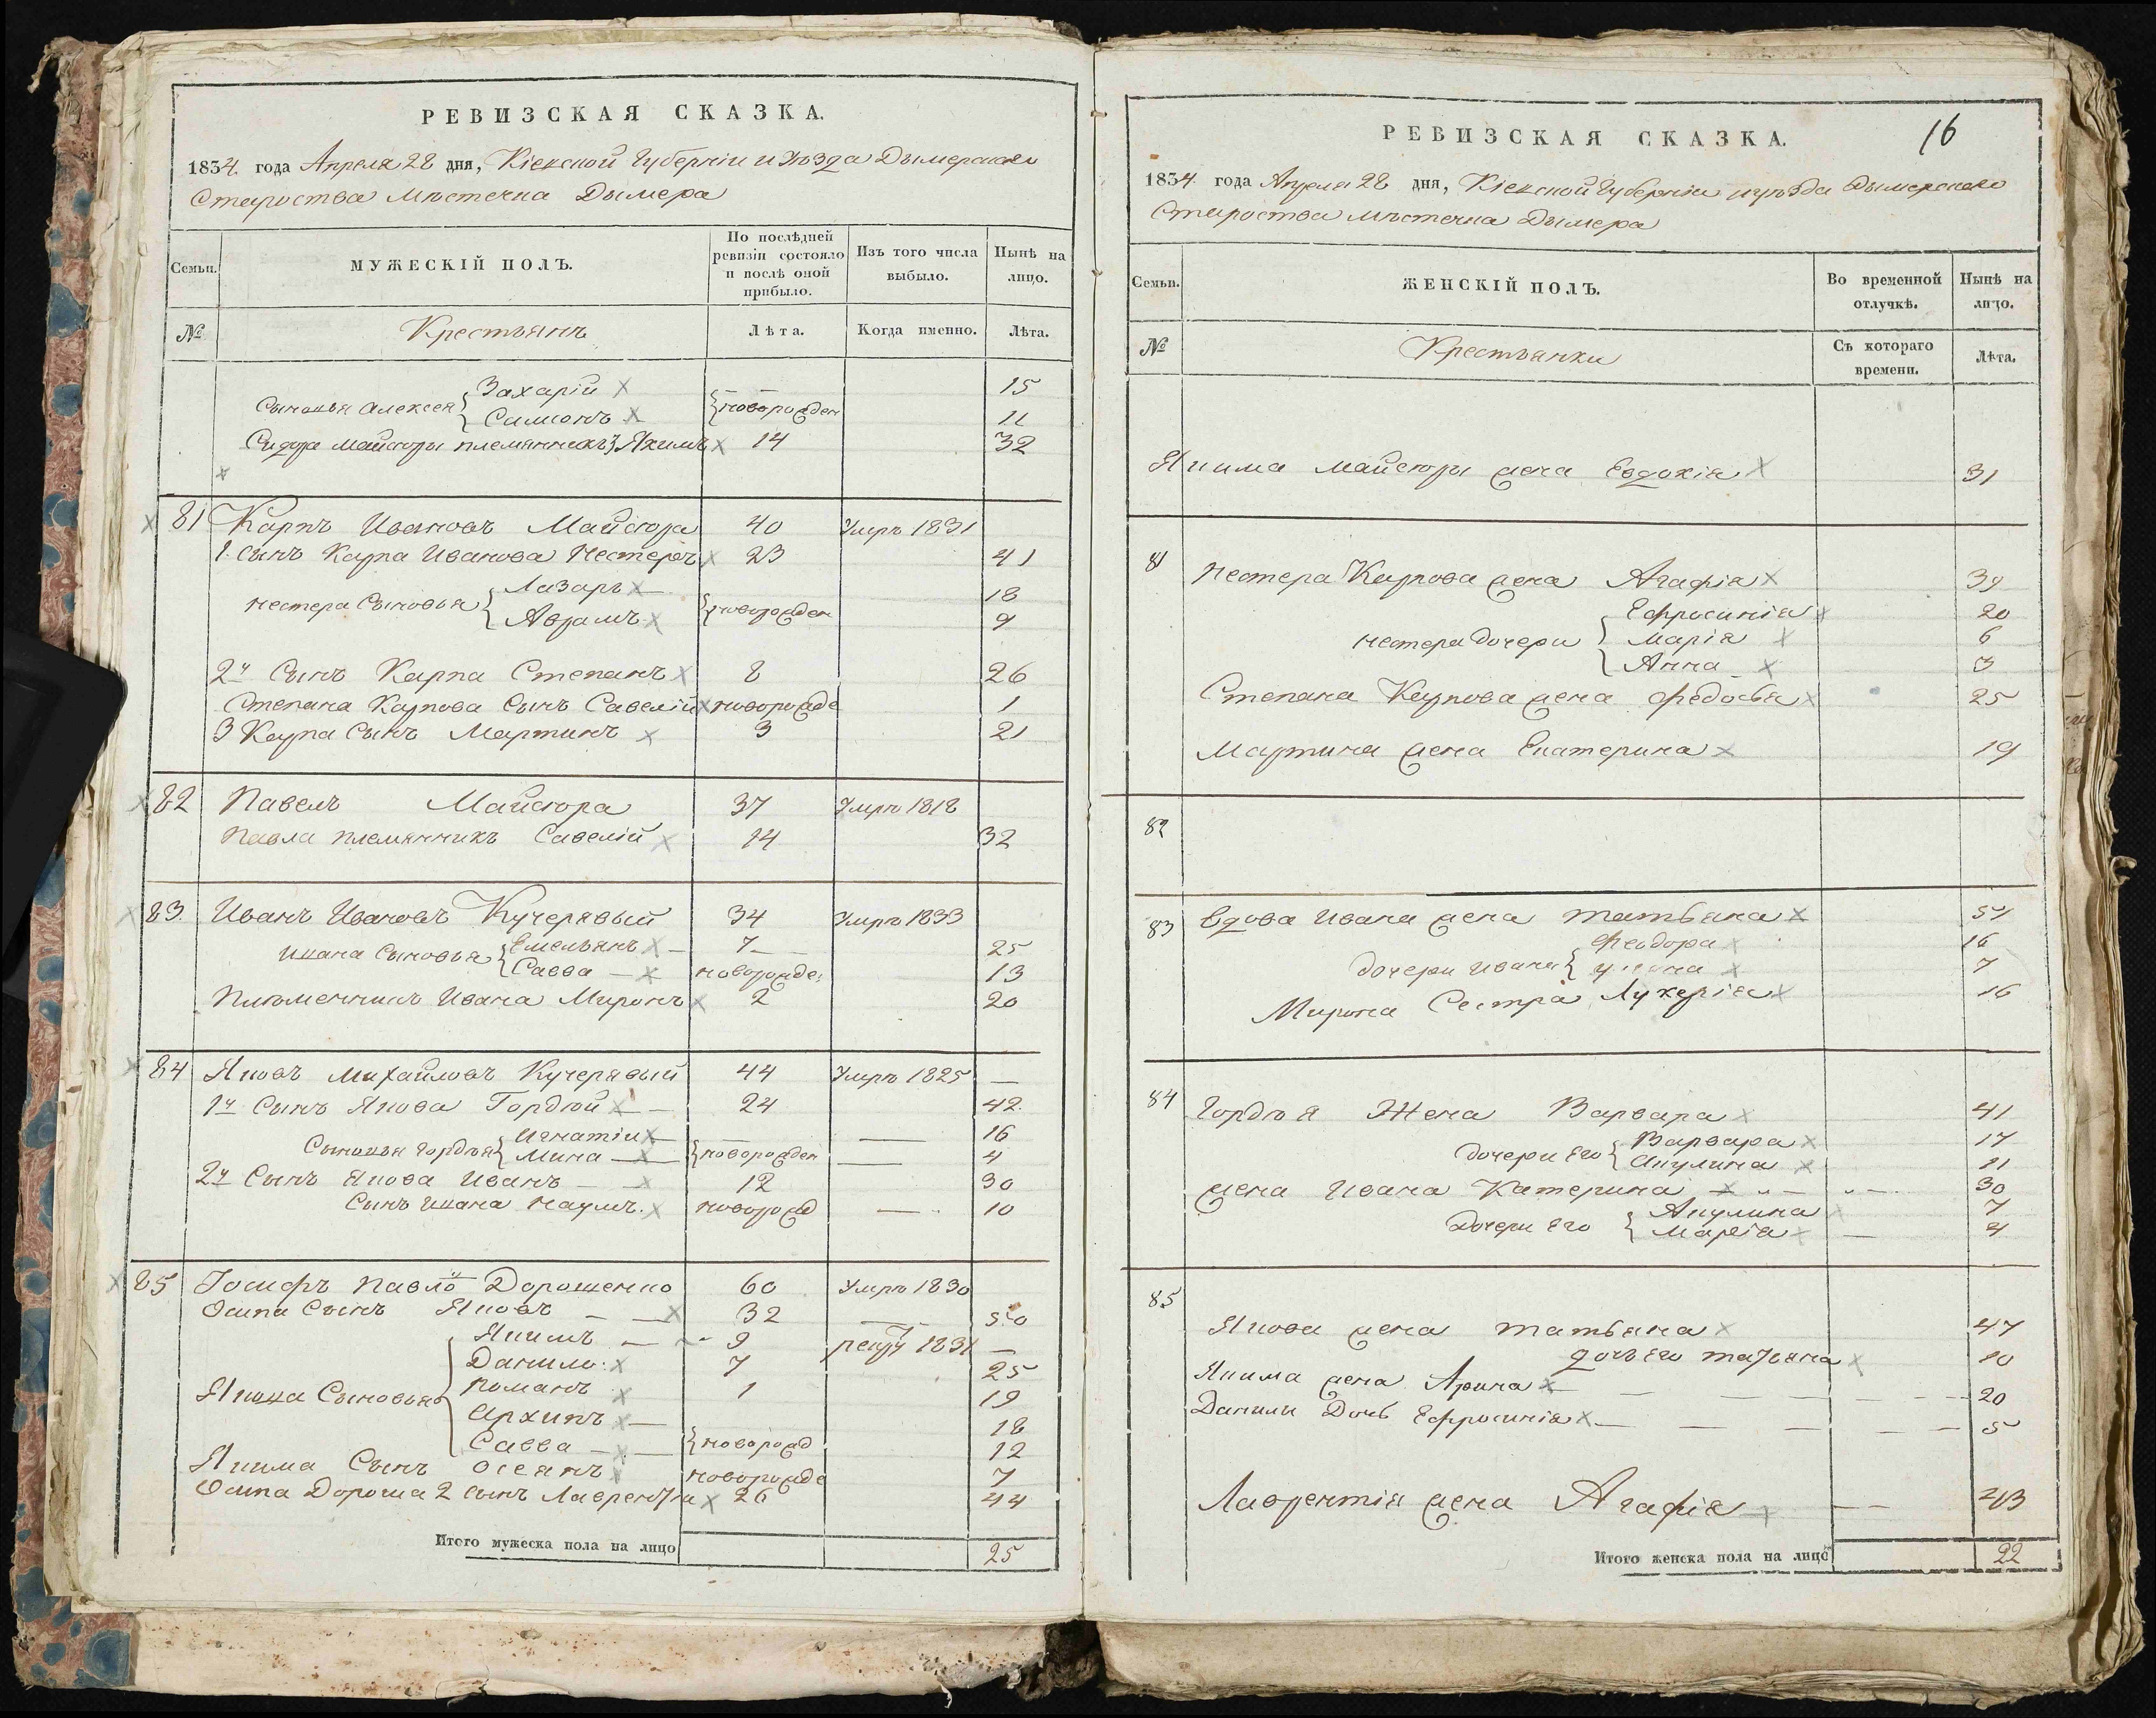 РЕВИЗСКАЯ СКАЗКА.
1834. года Апреля 28 дня, Кіевской Губерніи и Уѣзда Дымерскаго
Староства Мѣстечка Дымера
Семьи.
МУЖЕСКІЙ ПОЛЪ.
По послѣдней ревизіи состояло и послѣ оной прибыло.
Изъ того числа выбыло.
Нынѣ на лицо.
№
Крестьянъ
Лѣта.
Когда именно.
Лѣта.
Сыновья Алексея { Захарій 15
Симонъ { новорожден 11
Сидора Майсюры племянникъ } Якимъ 14 32
81 Карпъ Ивановъ Майсюра 40 Умръ 1831
1. Сынъ Карпа Иванова Нестеръ 23 41
Нестера Сыновья { Лазарь 18
Аврамъ { новорожден 9
2й Сынъ Карпа Степанъ 8 26
Степана Карпова Сынъ Савелій новорожде 1
3 Карпа Сынъ Мартинъ 3 21
82 Павелъ Майсюра 37 Умръ 1818
Павла племянникъ Савелій 14 32
83. Иванъ Ивановъ Кучерявый 34 Умръ 1833
Ивана Сыновья { Емельянъ 7 25
Савва новорожде 13
Племенникъ Ивана Миронъ 2 20
84 Яковъ Михайловъ Кучерявый 44 Умръ 1825 —
1й Сынъ Якова Гордѣй 24 42
Сыновья Гордѣя { Игнатій — 16
Мина { новорожден — 4
2й Сынъ Якова Иванъ 12 30
Сынъ Ивана Наумъ. новорожд — 10
85 Іосифъ Павло Дорошенко 60 Умръ 1830
Осипа Сынъ Яковъ 32 — 50
Якимъ 9 1831 —
Данило. 7 25
Якова Сыновья { Романъ 1 19
Архипъ 18
Савва { новорожд 12
Якима Сынъ новорожде 7
Осипа Дороша 2 Сынъ Лаврентій 26 44
Итого мужеска пола на лицо 25
16
РЕВИЗСКАЯ СКАЗКА.
1834. года Апреля 28 дня, Кіевской Губерніи и уѣзда Дымерскаго
Староства Мѣстечка Дымера
Семьи.
ЖЕНСКІЙ ПОЛЪ.
Во временной отлучкѣ.
Нынѣ на лицо.
№
Крестьянки
Съ котораго времени.
Лѣта.
Якима Майсюры жена Евдокія 31
81
Нестера Карпова жена Агафія 39
Ефросинія 20
Нестера дочери { Марія 6
Анна 3
Степана Карпова жена Федосья 25
Мартина жена Екатерина 19
82
83 Вдова Ивана жена Татьяна
Феодора 16
дочери Ивана { 7
Мирона Сестра Лукерія 16
84 Гордѣя Жена Варвара 41
дочери Его { Варвара 17
Акулина 11
жена Ивана Катерина 30
Дочери Его { Акулина 7
Марѳіа 4
85
Якова жена Татьяна 47
дочь Его Татьяна 10
Якима жена Арина 20
Данилы Дочь Ефросинія 5
Лаврентія жена Агафія 43
Итого женска пола на лицо 22